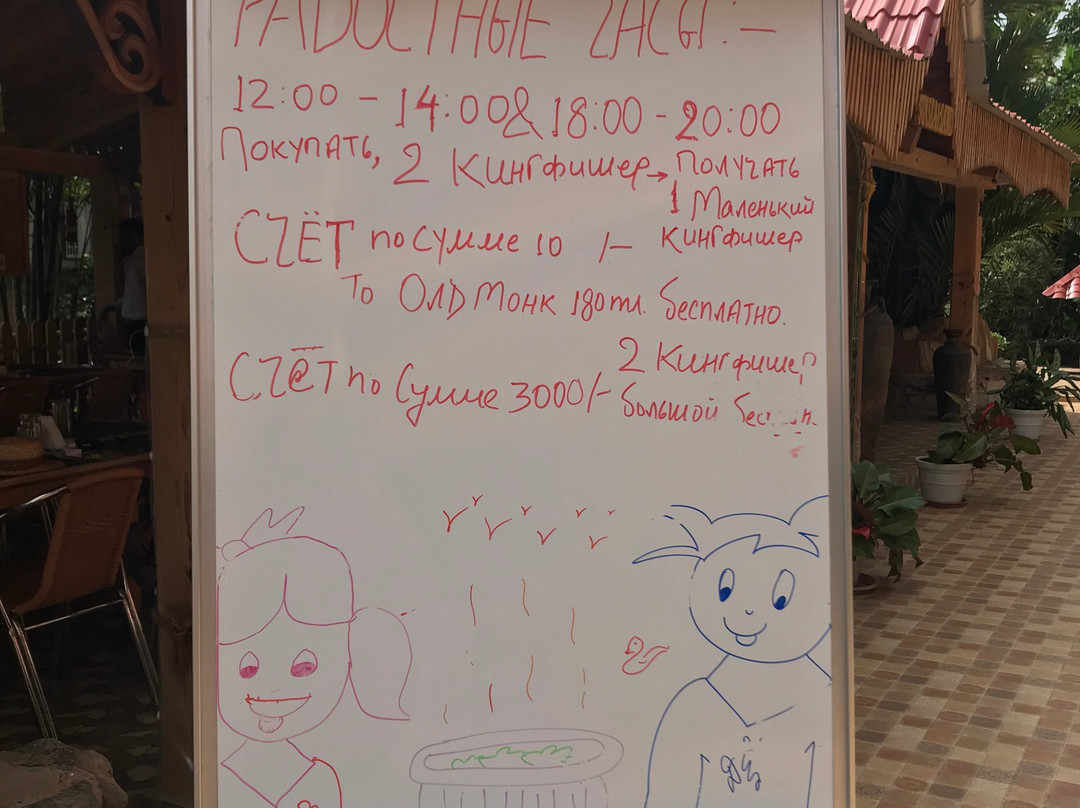 РАДОСТНЫЕ ЧАСЫ:-
12:00 - 14:00 & 18:00 - 20:00
ПОКУПАТЬ, 2 КИНГФИШЕР → ПОЛУЧАТЬ
1 МАЛЕНЬКИЙ
КИНГФИШЕР
СЧЁТ по СУММЕ 10 /-
ТО ОЛД МОНК 180 мл. БЕСПЛАТНО.
2 КИНГФИШЕР
СЧ@Т по СУММЕ 3000/- БОЛЬШОЙ